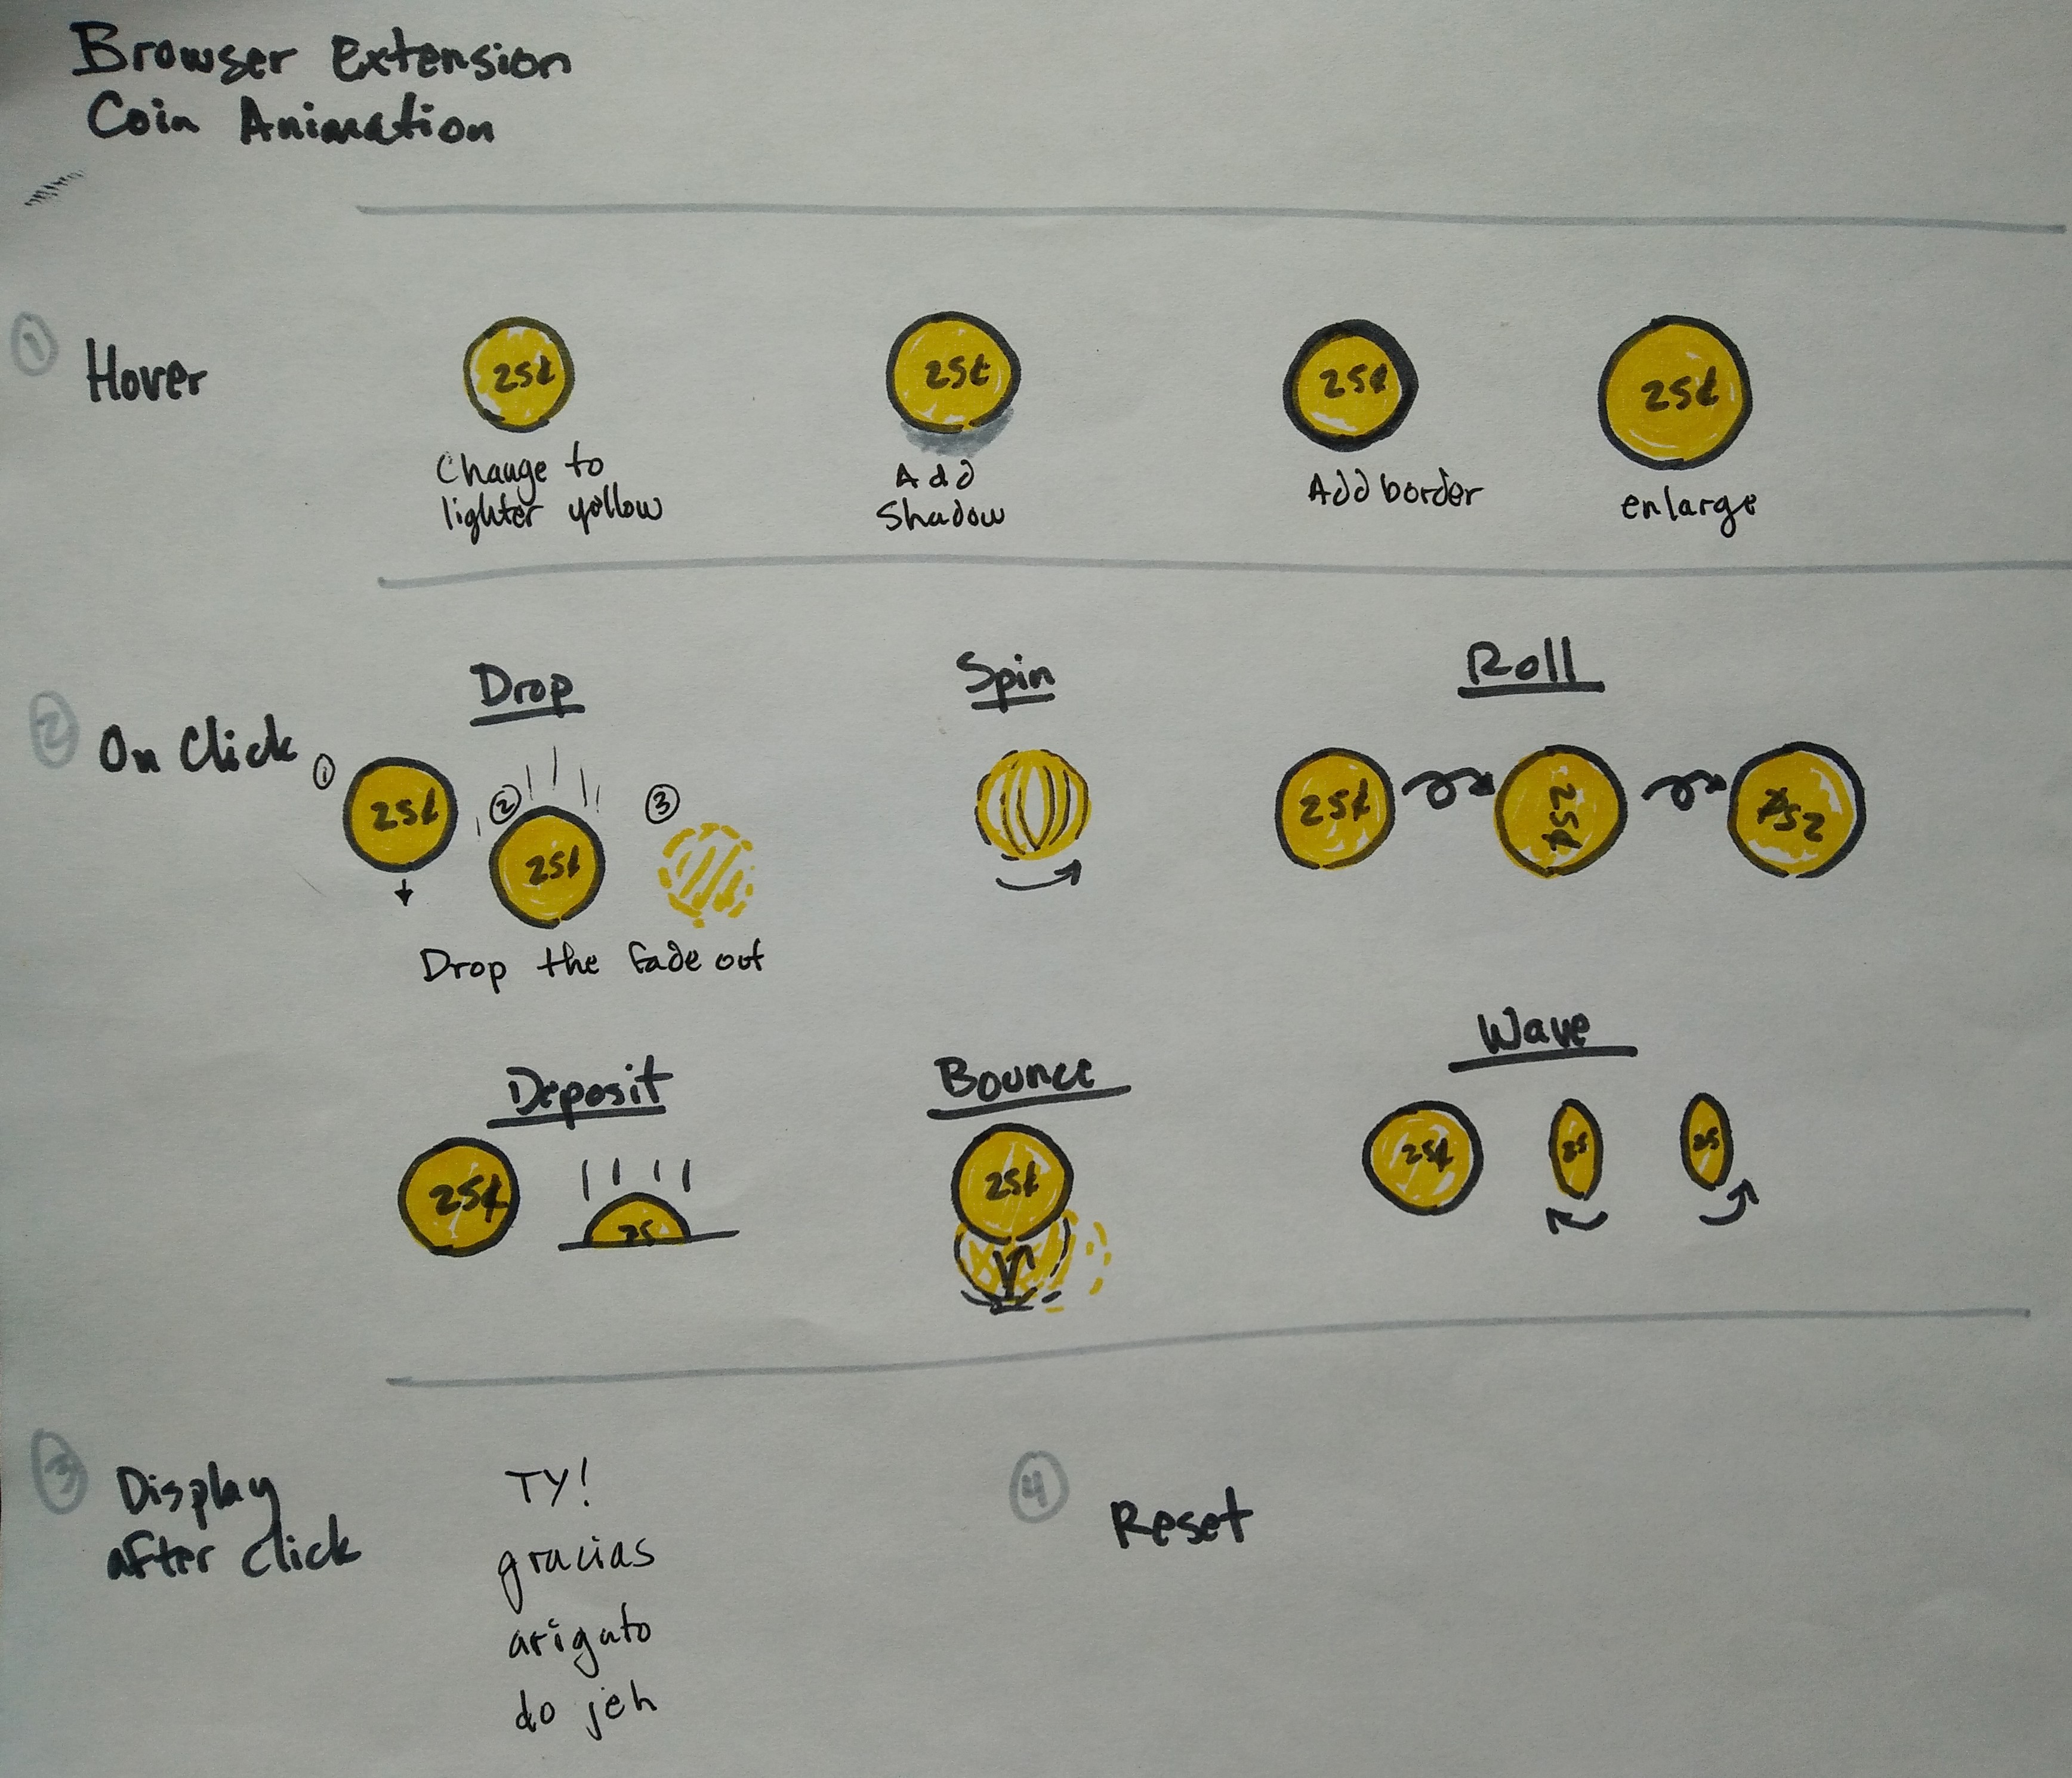 Browser Extension
Coin Animation
1 Hover
25¢ 25¢ 25¢ 25¢
Change to
lighter yellow
Add
Shadow
Add border
enlarge
2 On Click
Drop
1 25¢
2 25¢
3
Drop the fade out
Spin
Roll
25¢ 25¢ 25¢
Deposit
25¢ 25
Bounce
25¢
Wave
25¢ 25 25
3 Display
after click
TY!
gracias
arigato
do jeh
4 Reset